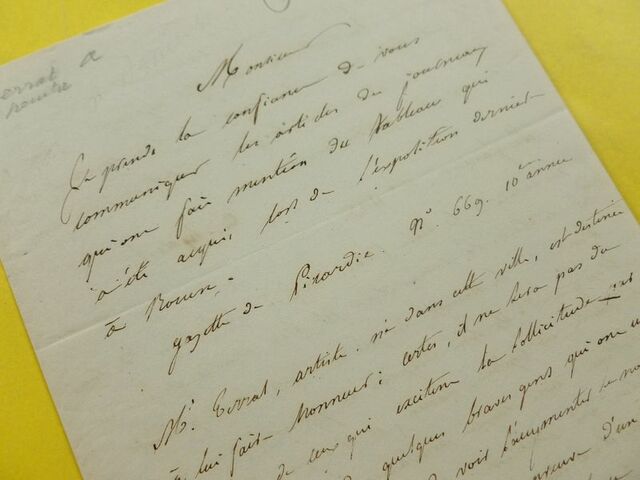 Monsieur
Je prends la confiance de vous
communiquer les articles du journeaux
qui ont fait mention du tableau qui
à été acquis, lors de l'exposition dernière
à Rouen.
gazette de Picardie. N° 669. 10e année
Mr Terral, artiste né dans cette ville, est destiné
à lui fait honneur; certes, il ne sera pas du
de ceux qui excitent la sollicitude par
quelques braves gens qui ont
voir l'augmenter
d'un